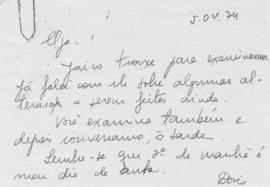 5.04.74
Olga:
Jairo trouxe para examinarmos.
Já falei com ele sobre algumas al-
terações a serem feitas ainda.
Você examina também e
depois conversamos, à tarde.
Lembre-se que 3ª de manhã é
meu dia de aula.
Doris